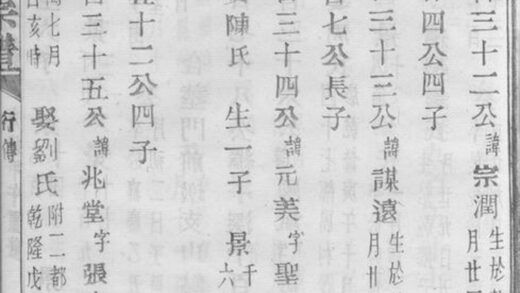 三十二公諱宗潤生於
月廿
四公四子
三十三公諱謀遠生於
月廿
七公長子
三十四公諱元美字聖
陳氏 生一子 景千
六
十二公四子
三十五公諱兆堂字張
七月
亥時
娶劉氏附一二都
乾隆戊
行傳